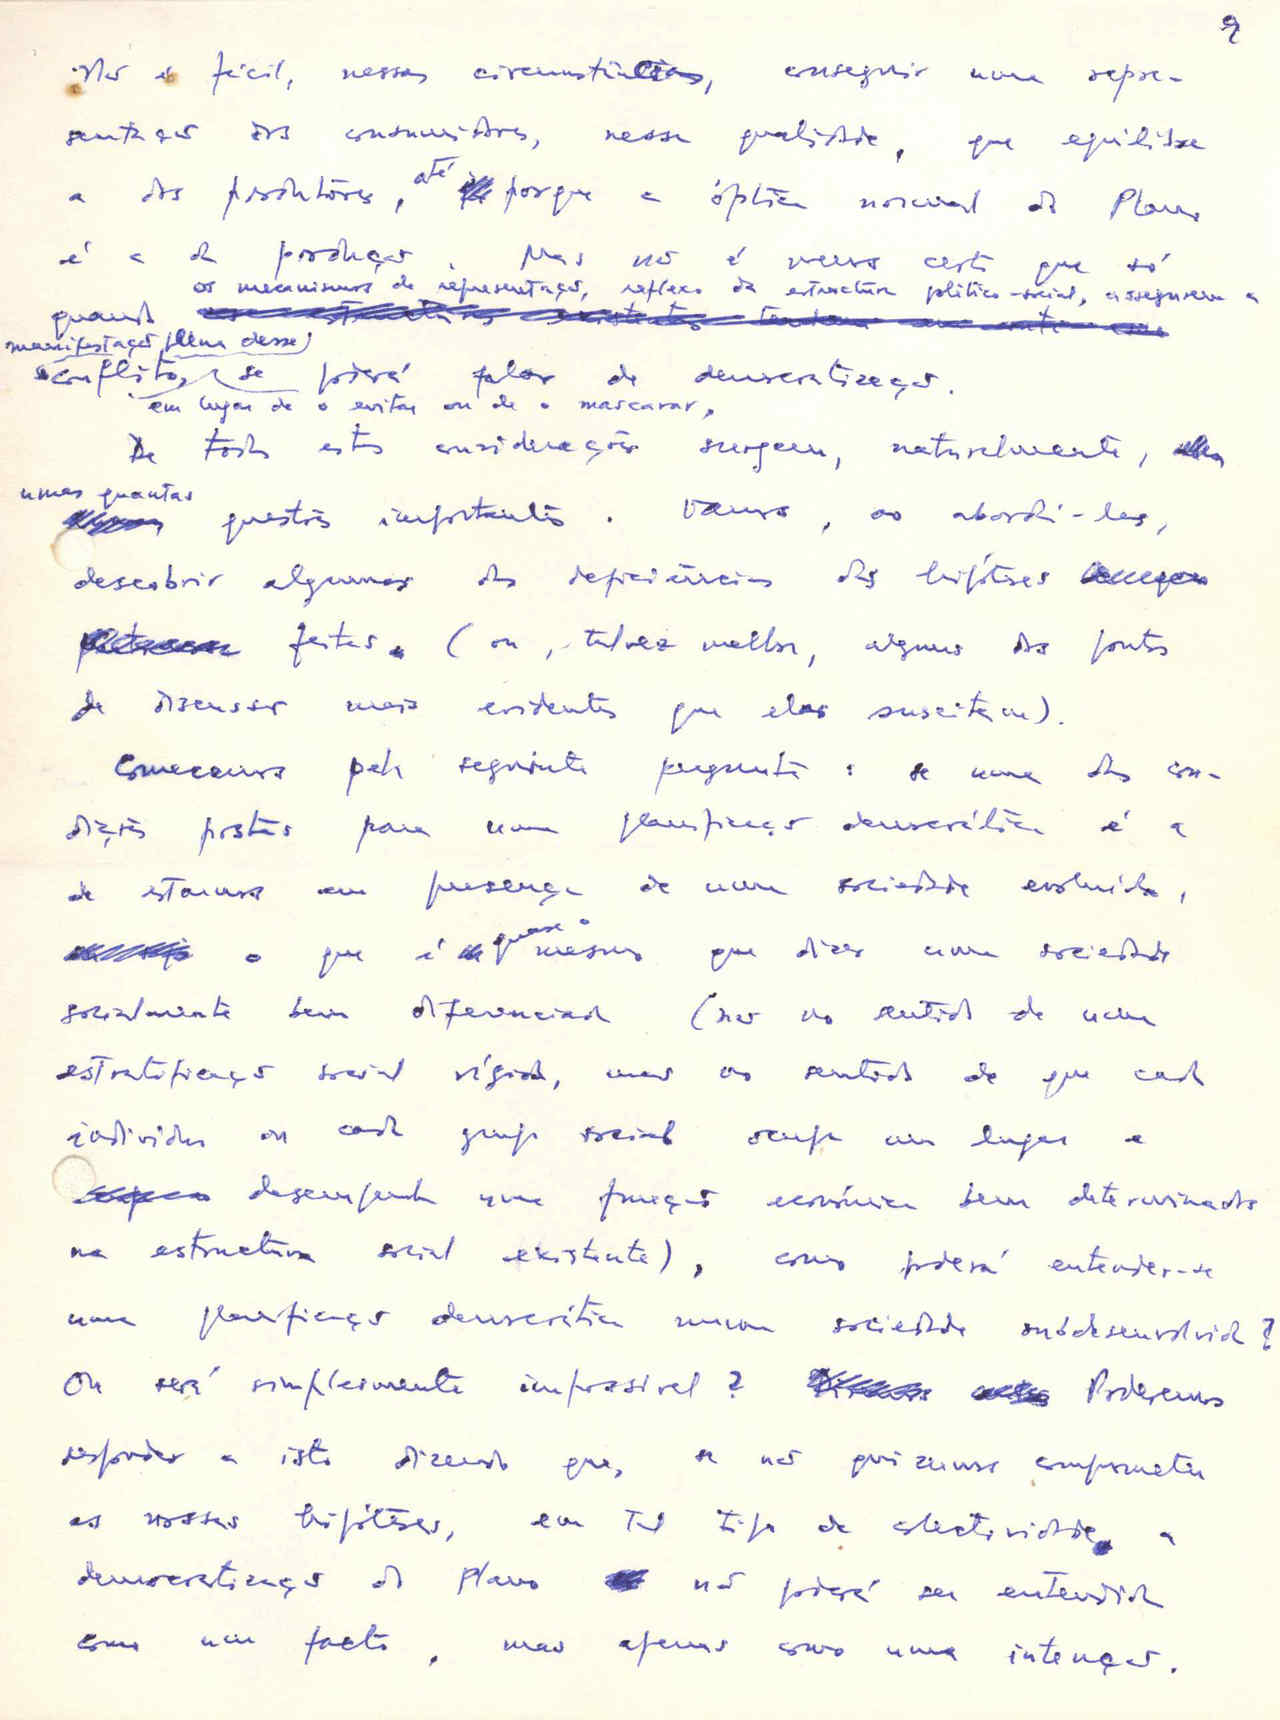 9
Não é fácil, nessas circunstâncias, conseguir uma repre-
sentação dos consumidores, nessa qualidade, que equilibre
a dos produtores, até porque a óptica normal do Plano
é a da produção. Mas não é menos certo que só
os mecanismos de representação, reflexo da estructura político-social, assegurem a
quando
manifestação plena desse
conflito, se poderá falar de democratização.
em lugar de o evitar ou de o mascarar,
De todas estas considerações surgem, naturalmente,
umas quantas
questões importantes. Vamos, ao abordá-las,
descobrir algumas das deficiências das hipóteses
feitas. (ou, talvez melhor, alguns dos pontos
de discussão mais evidentes que elas suscitam).
Comecemos pela seguinte pergunta: se uma das con-
dições postas para uma planificação democrática é a
de estarmos em presença de uma sociedade evoluída,
o que é quase o mesmo que dizer uma sociedade
socialmente bem diferenciada (não no sentido de uma
estratificação social rígida, mas no sentido de que cada
indivíduo ou cada grupo social ocupa um lugar e
desempenha uma função económica bem determinada
na estructura social existente), como poderá entender-se
uma planificação democrática numa sociedade subdesenvolvida?
Ou será simplesmente impossível? Poderemos
responder a isto dizendo que, se não quizermos comprometer
as nossas hipóteses, em tal tipo de colectividade, a
democratização do Plano não poderá ser entendida
como um facto, mas apenas como uma intenção.